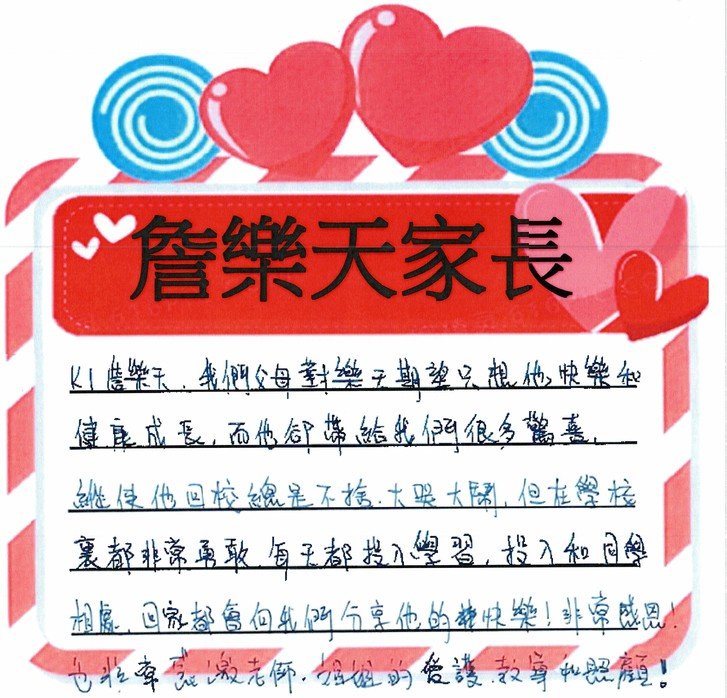 詹樂天家長
K1詹樂天，我們父母對樂天期望只想他快樂和
健康成長，而他卻帶給我們很多驚喜，
縱使他回校總是不捨，大哭大鬧，但在學校
裏都非常勇敢，每天都投入學習，投入和同學
相處，回家都會向我們分享他的快樂！非常感恩！
也非常感激老師，姐姐的愛護，教導和照顧！